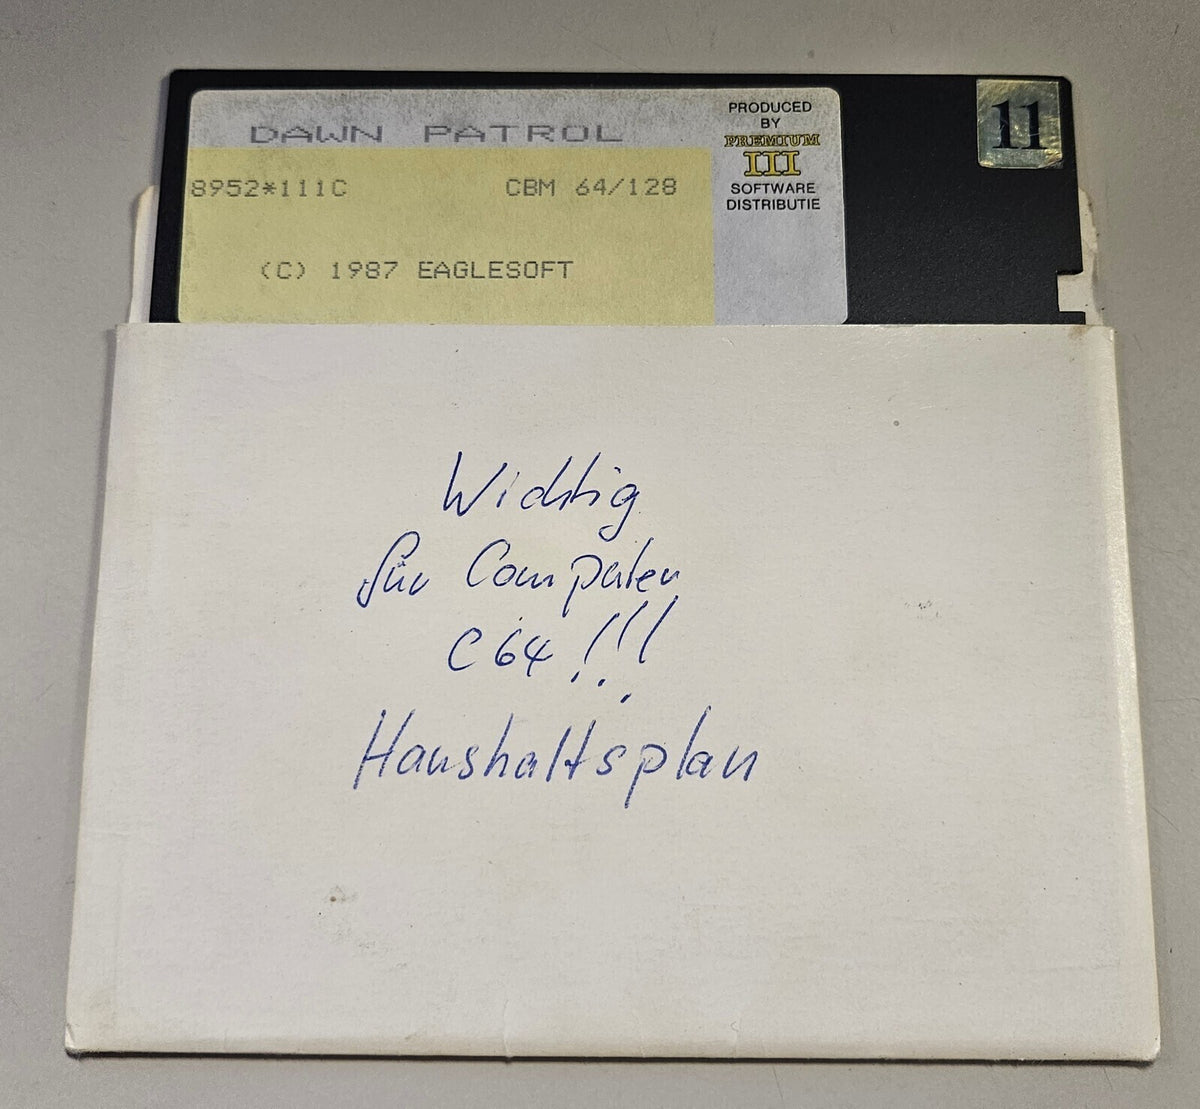 DAWN PATROL
8952*111C CBM 64/128
(C) 1987 EAGLESOFT
PRODUCED
BY
PREMIUM
III
SOFTWARE
DISTRIBUTIE
11
Wichtig
für Computer
C64 !!!
Haushaltsplan